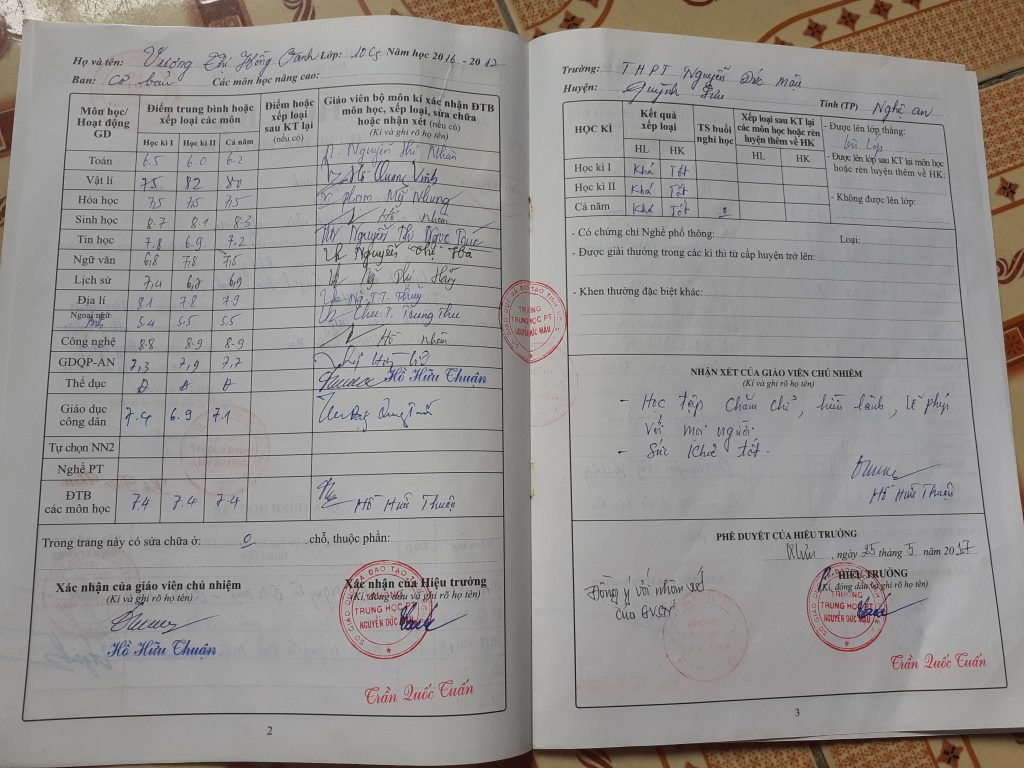 Họ và tên: Vương Thị Hồng Oanh Lớp: 10C5 Năm học 2016 - 2017
Ban: Cơ bản Các môn học nâng cao:
Môn học/ Hoạt động GD
Điểm trung bình hoặc xếp loại các môn
Học kì I Học kì II Cả năm
Điểm hoặc xếp loại sau KT lại (nếu có)
Giáo viên bộ môn kí xác nhận ĐTB môn học, xếp loại, sửa chữa hoặc nhận xét (nếu có)
(Kí và ghi rõ họ tên)
Toán 6.5 6.0 6.2 Nguyễn Thị Nhàn
Vật lí 7.5 8.2 8.0 Hồ Quang Vinh
Hóa học 7.5 7.5 7.5 Phạm Mỹ Nhung
Sinh học 8.7 8.1 8.3 Hồ Nhân
Tin học 7.8 6.9 7.2 Nguyễn Thị Ngọc
Ngữ văn 6,8 7,8 7,5 Nguyễn Thị Hà
Lịch sử 7,4 6,9
Địa lí 8.1 7.8 7.9 T.T. Thủy
Ngoại ngữ Anh 5.4 5.5 5.5 Chu T. Trung Thu
Công nghệ 8.8 8.9 8.9 Hồ Nhân
GDQP-AN 7,3 7,9 7,7
Thể dục Đ Đ Đ Hồ Hữu Thuận
Giáo dục công dân 7.4 6.9 7.1
Tự chọn NN2
Nghề PT
ĐTB các môn học 7.4 7.4 7.4 Hồ Hữu Thuận
Trong trang này có sửa chữa ở: 0 chỗ, thuộc phần:
Xác nhận của giáo viên chủ nhiệm
(Kí và ghi rõ họ tên)
Hồ Hữu Thuận
Xác nhận của Hiệu trưởng
(Kí, đóng dấu và ghi rõ họ tên)
TRƯỜNG
TRUNG HỌC PT
NGUYỄN ĐỨC MẬU
Trần Quốc Tuấn
2
TRƯỜNG
TRUNG HỌC PT
NGUYỄN ĐỨC MẬU
Trường: T.H.P.T Nguyễn Đức Mậu
Huyện: Quỳnh Lưu Tỉnh (TP) Nghệ an
HỌC KÌ
Kết quả xếp loại
HL HK
TS buổi nghỉ học
Xếp loại sau KT lại các môn học hoặc rèn luyện thêm về HK
HL HK
Học kì I Khá Tốt
Học kì II Khá Tốt
Cả năm Khá Tốt
- Được lên lớp thẳng:
lên lớp
- Được lên lớp sau KT lại môn học hoặc rèn luyện thêm về HK:
- Không được lên lớp:
- Có chứng chỉ Nghề phổ thông: Loại:
- Được giải thưởng trong các kì thi từ cấp huyện trở lên:
- Khen thưởng đặc biệt khác:
NHẬN XÉT CỦA GIÁO VIÊN CHỦ NHIỆM
(Kí và ghi rõ họ tên)
- Học tập chăm chỉ, hiền lành, lễ phép
với mọi người.
- Sức khoẻ tốt.
Hồ Hữu Thuận
PHÊ DUYỆT CỦA HIỆU TRƯỞNG
, ngày 25 tháng 5 năm 2017
Đồng ý với nhận xét
của GVCN
HIỆU TRƯỞNG
(Kí, đóng dấu và ghi rõ họ tên)
TRƯỜNG
TRUNG HỌC PT
NGUYỄN ĐỨC MẬU
Trần Quốc Tuấn
3